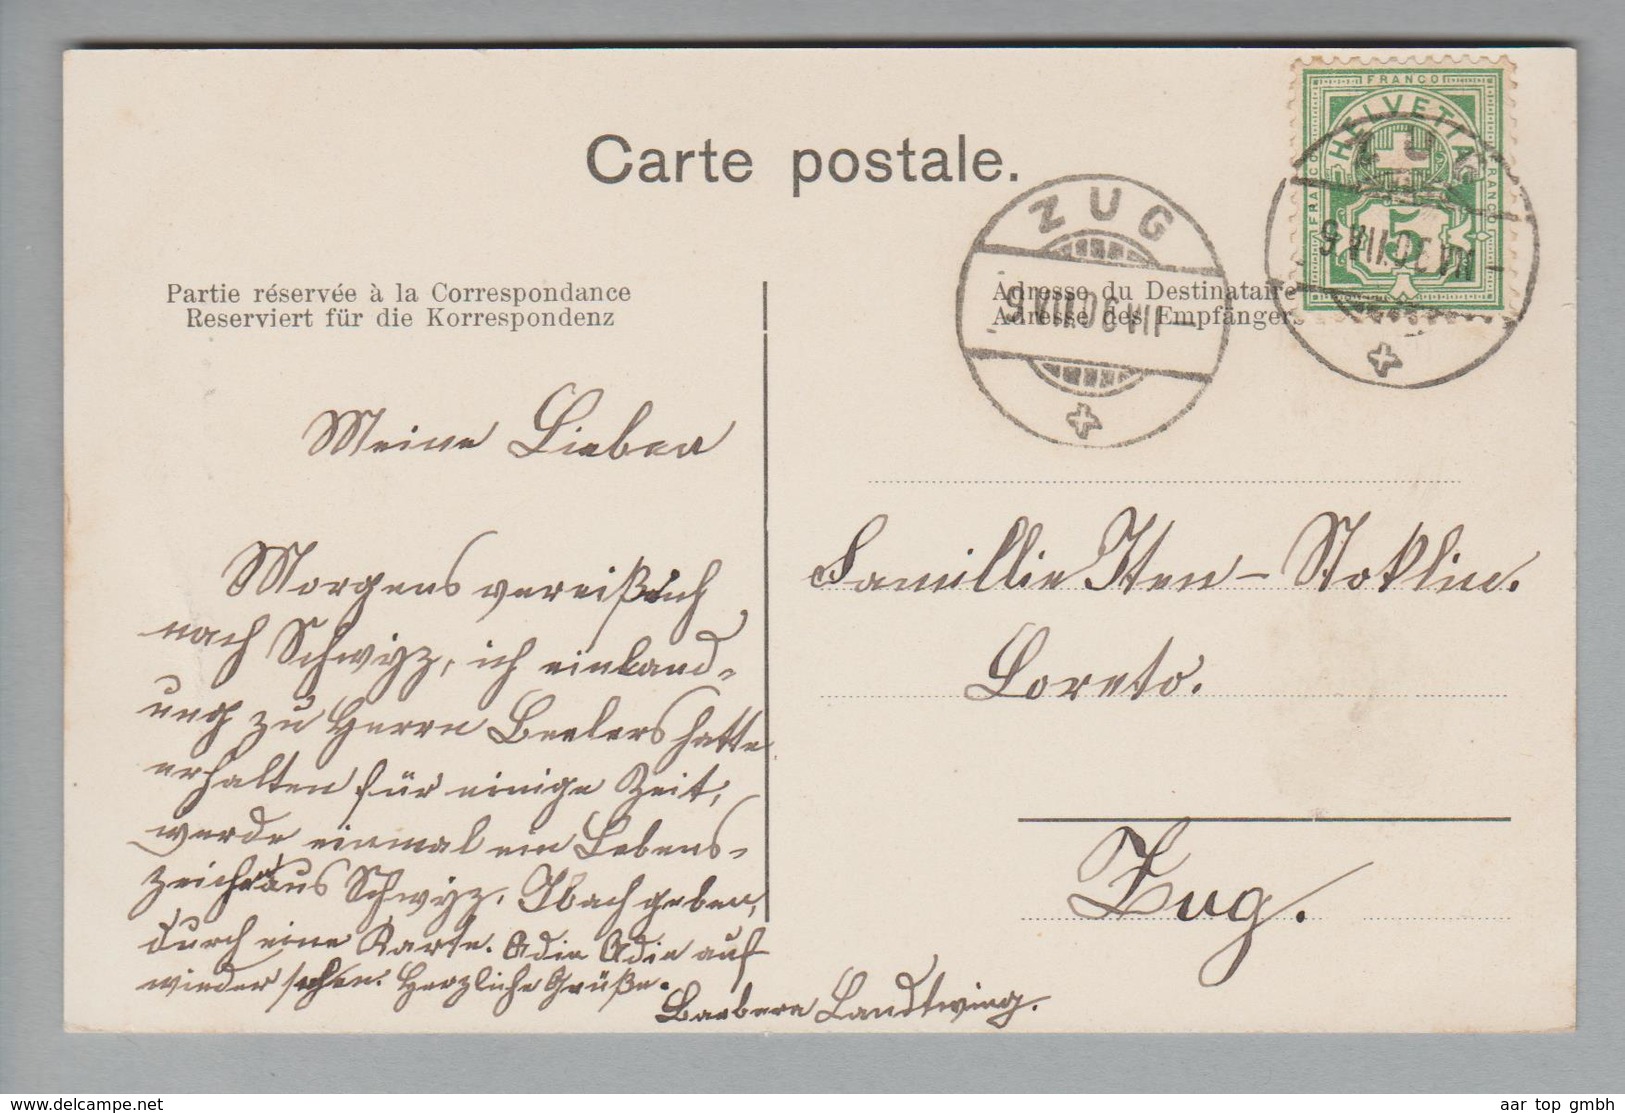 Carte postale.
FRANCO
HELVETIA
FRANCO
FRANCO
5
ZUG
9.VII.06.VII-
ZUG
9.VII.06.VII-
Partie réservée à la Correspondance
Reserviert für die Korrespondenz
Adresse du Destinataire
Adresse des Empfängers
Meine Lieben
Morgens verreiße ich
nach Schwyz, ich einland-
ung zu Herrn Beelers hatte
erhalten für einige Zeit,
werde einmal ein Lebens-
zeichen aus Schwyz. Ibach geben,
durch eine Karte. Adie Adie auf
wieder sehen. Herzliche Grüße.
Barbara Landtwing.
Familllie Iten-Stoklin.
Loreto.
Zug.
https://www.delcampe.net
aar top gmbh